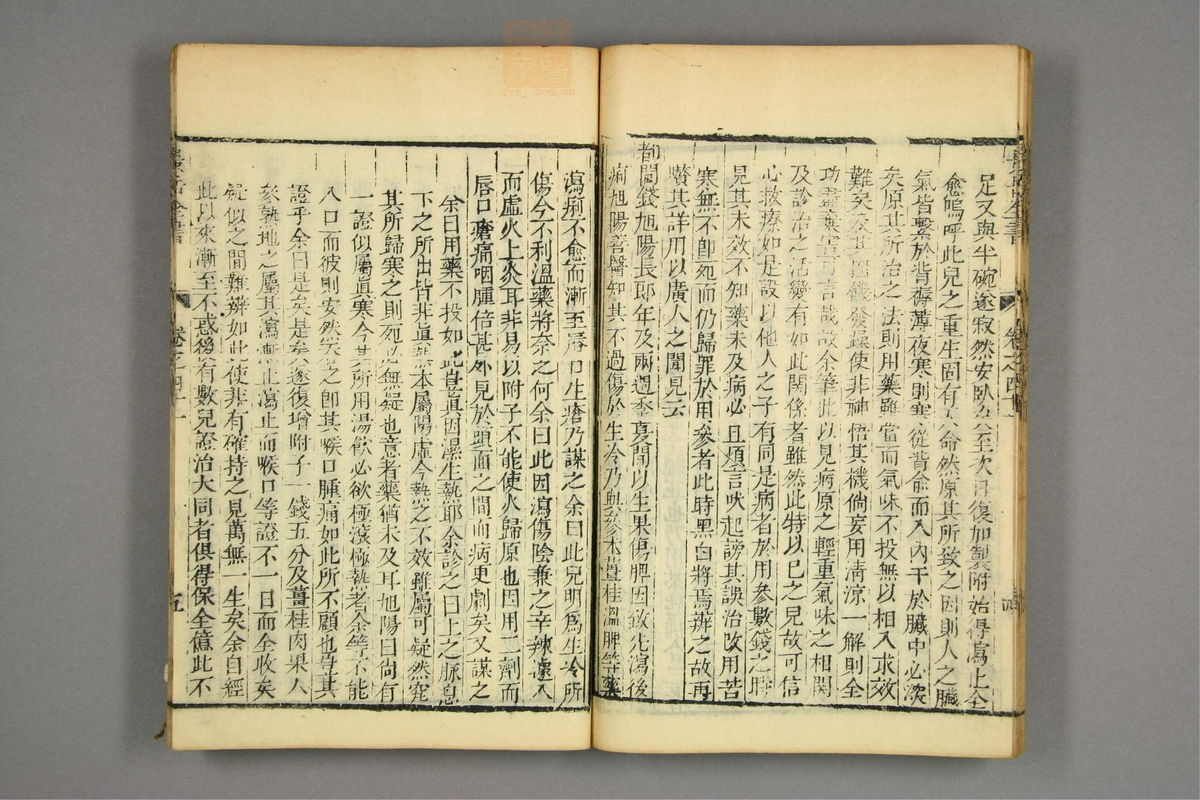 足又與半碗遂寂然安臥矣至次日復加製附始得瀉止全
愈嗚呼此兒之重生固有天命然原其所致之因則人之臟
氣皆繫於背褥薄夜寒則寒從背俞而入內干於臟中必深
矣原其所治之法則用藥雖當而氣味不投無以相入求效
難矣及其因飢發躁使非神悟其機倘妄用清涼一解則全
功盡棄害可言哉故余筆此以見病原之輕重氣味之相關
及診治之活變有如此關係者雖然此特以已之見故可信
心救療如是設以他人之子有同是病者於用參數錢之時
見其未效不知藥未及病必且煩言吠起謗其誤治改用苦
寒無不即死而仍歸罪於用參者此時黑白將焉辨之故再
贅其詳用以廣人之聞見云
都閫錢旭陽長郎年及兩週季夏間以生果傷脾因致先瀉後
痢旭陽善醫知其不過傷於生冷乃與參术薑桂溫脾等藥
瀉痢不愈而漸至唇口生瘡乃謀之余曰此兒明爲生冷所
傷今不利溫藥將奈之何余曰此因瀉傷陰兼之辛辣遽入
而虛火上炎耳非易以附子不能使火歸原也因用二劑而
唇口瘡痛咽腫倍甚外見於頭面之間而病更劇矣又謀之
余曰用藥不投如此豈眞因濕生熱耶余診之曰上之脈息
下之所出皆非眞熱本屬陽虛今熱之不效雖屬可疑然究
其所歸寒之則死必無疑也意者藥猶未及耳旭陽曰尚有
一證似屬眞寒今其所用湯飲必欲極滾極熱者余等不能
入口而彼則安然吞之即其喉口腫痛如此所不顧也豈其
證乎余曰是矣是矣遂復增附子一錢五分及薑桂肉果人
參熟地之屬其瀉漸止瀉止而喉口等證不一日而全收矣
疑似之間難辨如此使非有確持之見萬無一生矣余自經
此以來漸至不惑後有數兒證治大同者俱得保全億此不
景岳全書
卷之四十一
五